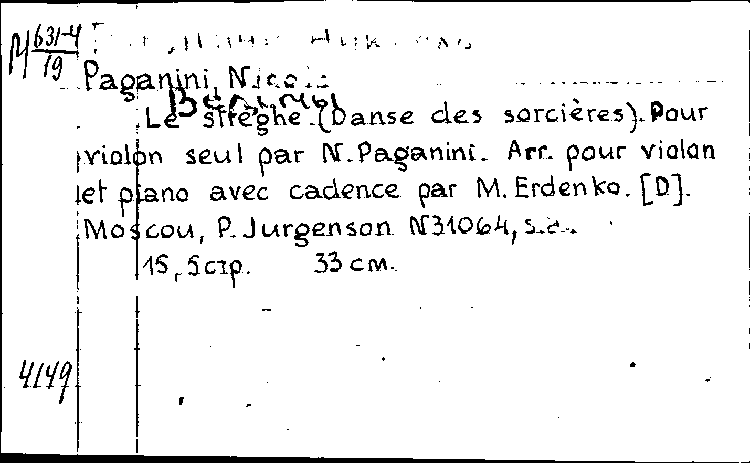 М 631-4
19
Paganini, Nicolo
Le streghe. (Danse des sorcières). Pour
violon seul par N. Paganini. Arr. pour violon
et piano avec cadence par M. Erdenko. [D].
Moscou, P. Jurgenson N31064, s.a.
15, 5 стр. 33 см.
4149